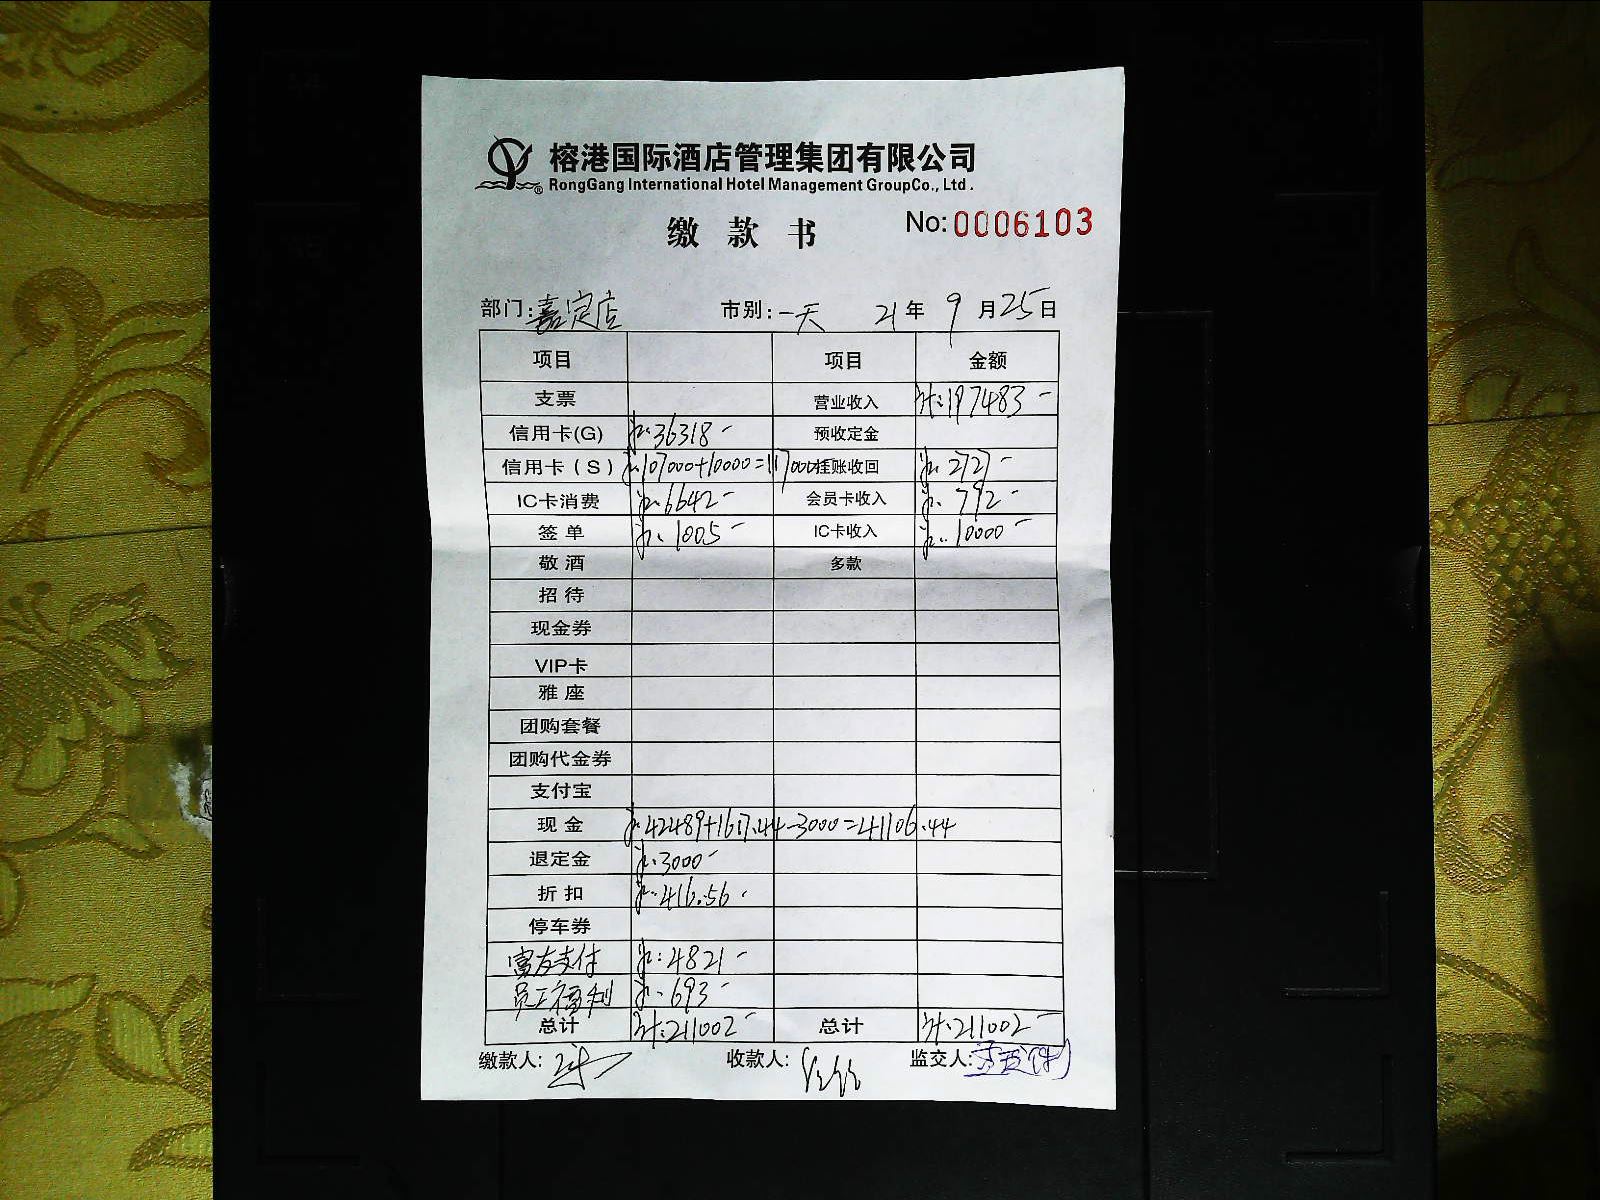 榕港国际酒店管理集团有限公司
RongGang International Hotel Management GroupCo., Ltd.
缴款书 No:0006103
部门:嘉定店 市别:一天 21年9月25日
项目 项目 金额
支票 营业收入 计:197483-
信用卡(G) 计:36318- 预收定金
信用卡(S) 计:107000+10000=117000 挂账收回 计:2727-
IC卡消费 计:6642- 会员卡收入 计:792-
签单 计:1005- IC卡收入 计:10000-
敬酒 多款
招待
现金券
VIP卡
雅座
团购套餐
团购代金券
支付宝
现金 计:42489+1617.44-3000=41106.44
退定金 计:3000-
折扣 计:416.56
停车券
富友支付 计:4821-
员工福利 计:693-
总计 计:211002- 总计 计:211002-
缴款人: 收款人: 监交人: